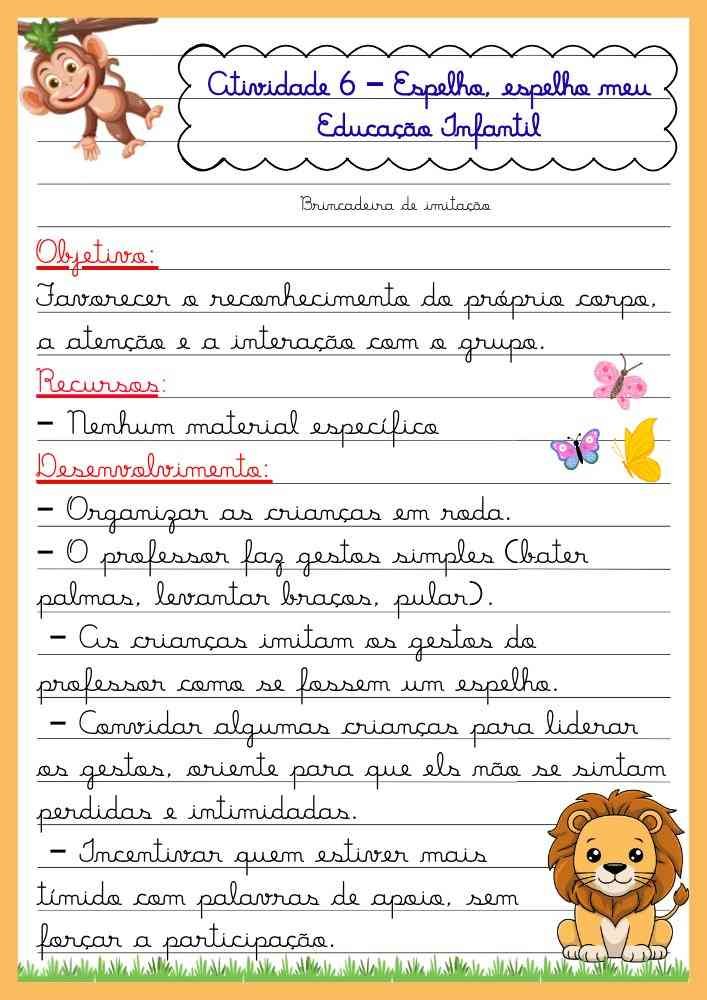 Atividade 6 - Espelho, espelho meu
Educação Infantil
Brincadeira de imitação
Objetivo:
Favorecer o reconhecimento do próprio corpo,
a atenção e a interação com o grupo.
Recursos:
- Nenhum material específico
Desenvolvimento:
- Organizar as crianças em roda.
- O professor faz gestos simples (bater
palmas, levantar braços, pular).
- As crianças imitam os gestos do
professor como se fossem um espelho.
- Convidar algumas crianças para liderar
os gestos, oriente para que els não se sintam
perdidas e intimidadas.
- Incentivar quem estiver mais
tímido com palavras de apoio, sem
forçar a participação.